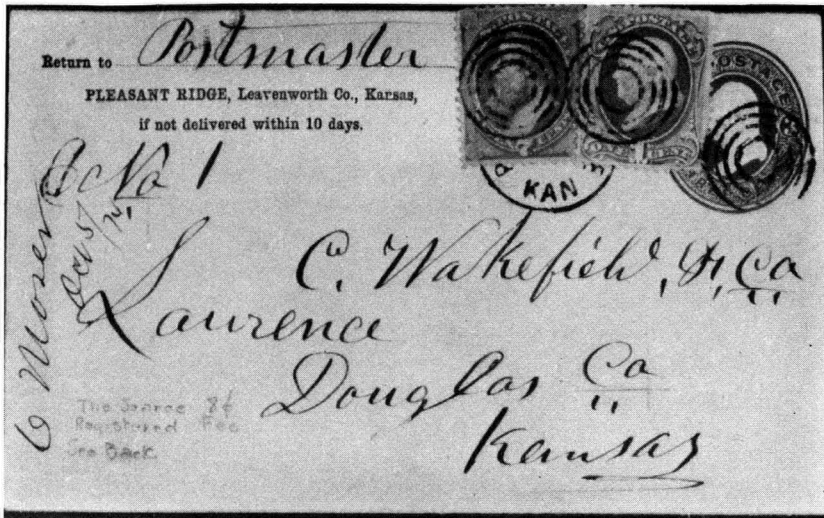 Return to Postmaster
PLEASANT RIDGE, Leavenworth Co., Kansas,
if not delivered within 10 days.
POSTAGE
KAN
No 1
Oct 5/
C. Wakefield, & Co
Laurence
Douglas Co
Kansas
The Scarce 8¢
Registered Fee
See Back